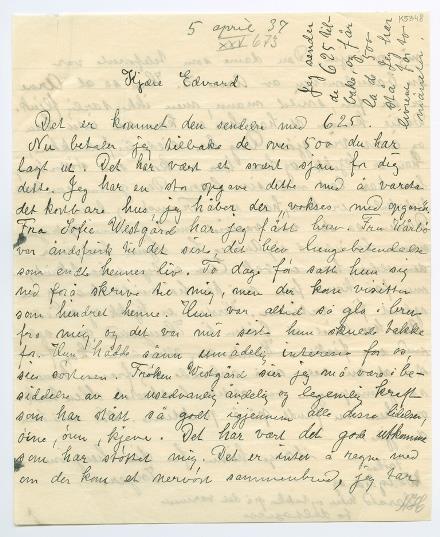 K5348
5 april 37
XXV 673
Jeg sender
de 625 til-
bake, og får
la de 500
stå. Jeg har
livrene for to
måneder.
Kjære Edvard
Det er kommet den sendelse med 625.
Nu betaler jeg tilbake de over 500 du har
lagt ut. Det har vært et svært sjau for dig
dette. Jeg har en stor opgave dette med å vareta
det kostbare hus, jeg håber der "vokses med opgaven"
Fra Sofie Westgård har jeg fått brev. Fru
var åndsfrisk til det siste, det blev lungebetendelse
som endte hennes liv. To dage før satt hun sig
ned for å skrive til mig, men der kom visitter
som hindret henne. Hun var altid så gla i brev
fra mig, og det var mit siste hun skulde takke
for. Hun hadde sånn umådelig interesse for os,
sier søsteren. Frøken Westgård sier jeg må være i be-
siddelse av en usedvanlig åndelig og legemlig kraft
som har stått så godt igjennem alle disse lidelser,
øine, Det har vært det gode utkomme
som har støttet mig. Det er intet å regne med
om der kom et nervøst sammenbrud, jeg har